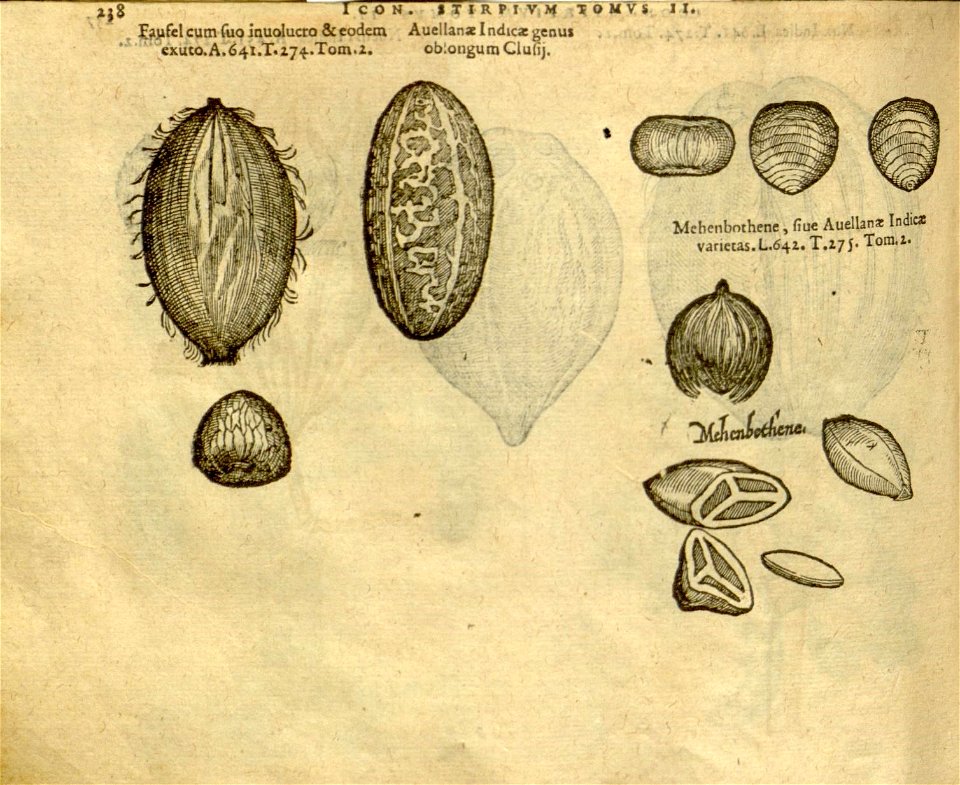 238
ICON. STIRPIVM TOMVS II.
Faufel cum ſuo inuolucro & eodem
exuto. A. 641. T. 274. Tom. 2.
Auellanæ Indicæ genus
oblongum Cluſij.
Mehenbothene, ſiue Auellanæ Indicæ
varietas. L. 642. T. 275. Tom. 2.
Mehenbethene.